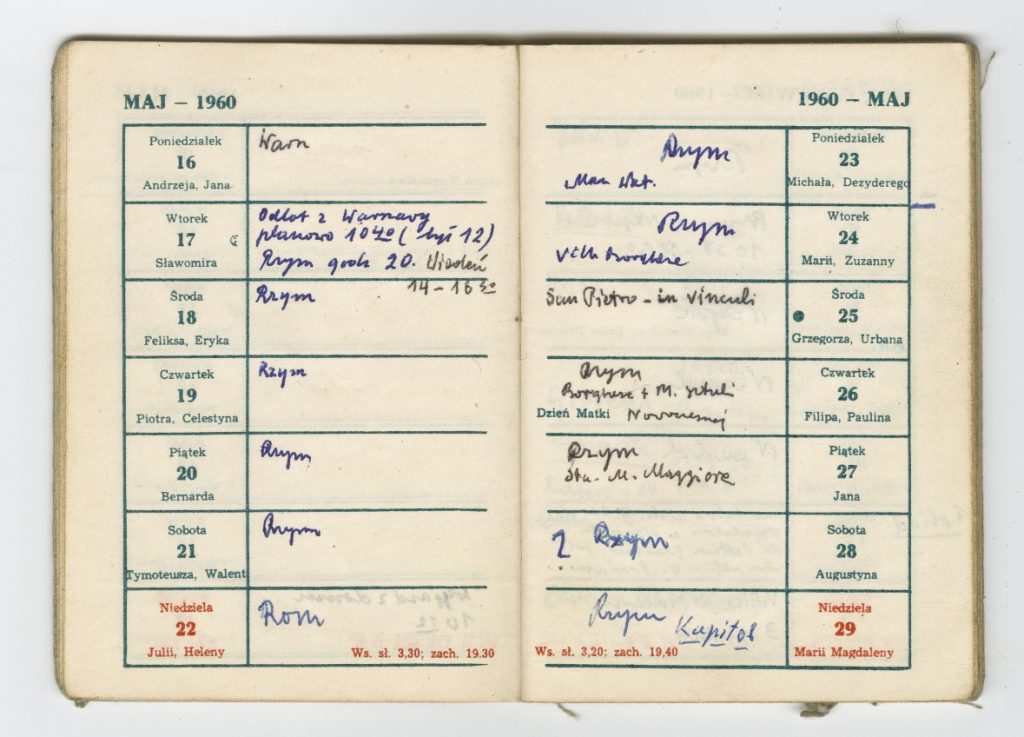 MAJ — 1960
Poniedziałek
16
Andrzeja, Jana
Warn
Wtorek
17
Sławomira
Odlot z Warszawy
planowo 10 40 ( był 12)
Rzym godz 20. Wiedeń
14-16 30
Środa
18
Feliksa, Eryka
Rzym
Czwartek
19
Piotra, Celestyna
Rzym
Piątek
20
Bernarda
Rzym
Sobota
21
Tymoteusza, Walent
Rzym
Niedziela
22
Julii, Heleny
Rom
Ws. sł. 3,30; zach. 19.30
1960 — MAJ
Rzym
Poniedziałek
23
Michała, Dezyderego
Muz. Wat.
Rzym
Wtorek
24
Marii, Zuzanny
Villa Borghese
San Pietro - in vinculi
Środa
25
Grzegorza, Urbana
Rzym
Borghese + M. sztuki
Dzień Matki Nowoczesnej
Czwartek
26
Filipa, Paulina
Rzym
Sta. M. Maggiore
Piątek
27
Jana
? Rzym
Sobota
28
Augustyna
Rzym Kapitol
Niedziela
29
Marii Magdaleny
Ws. sł. 3,20; zach. 19,40